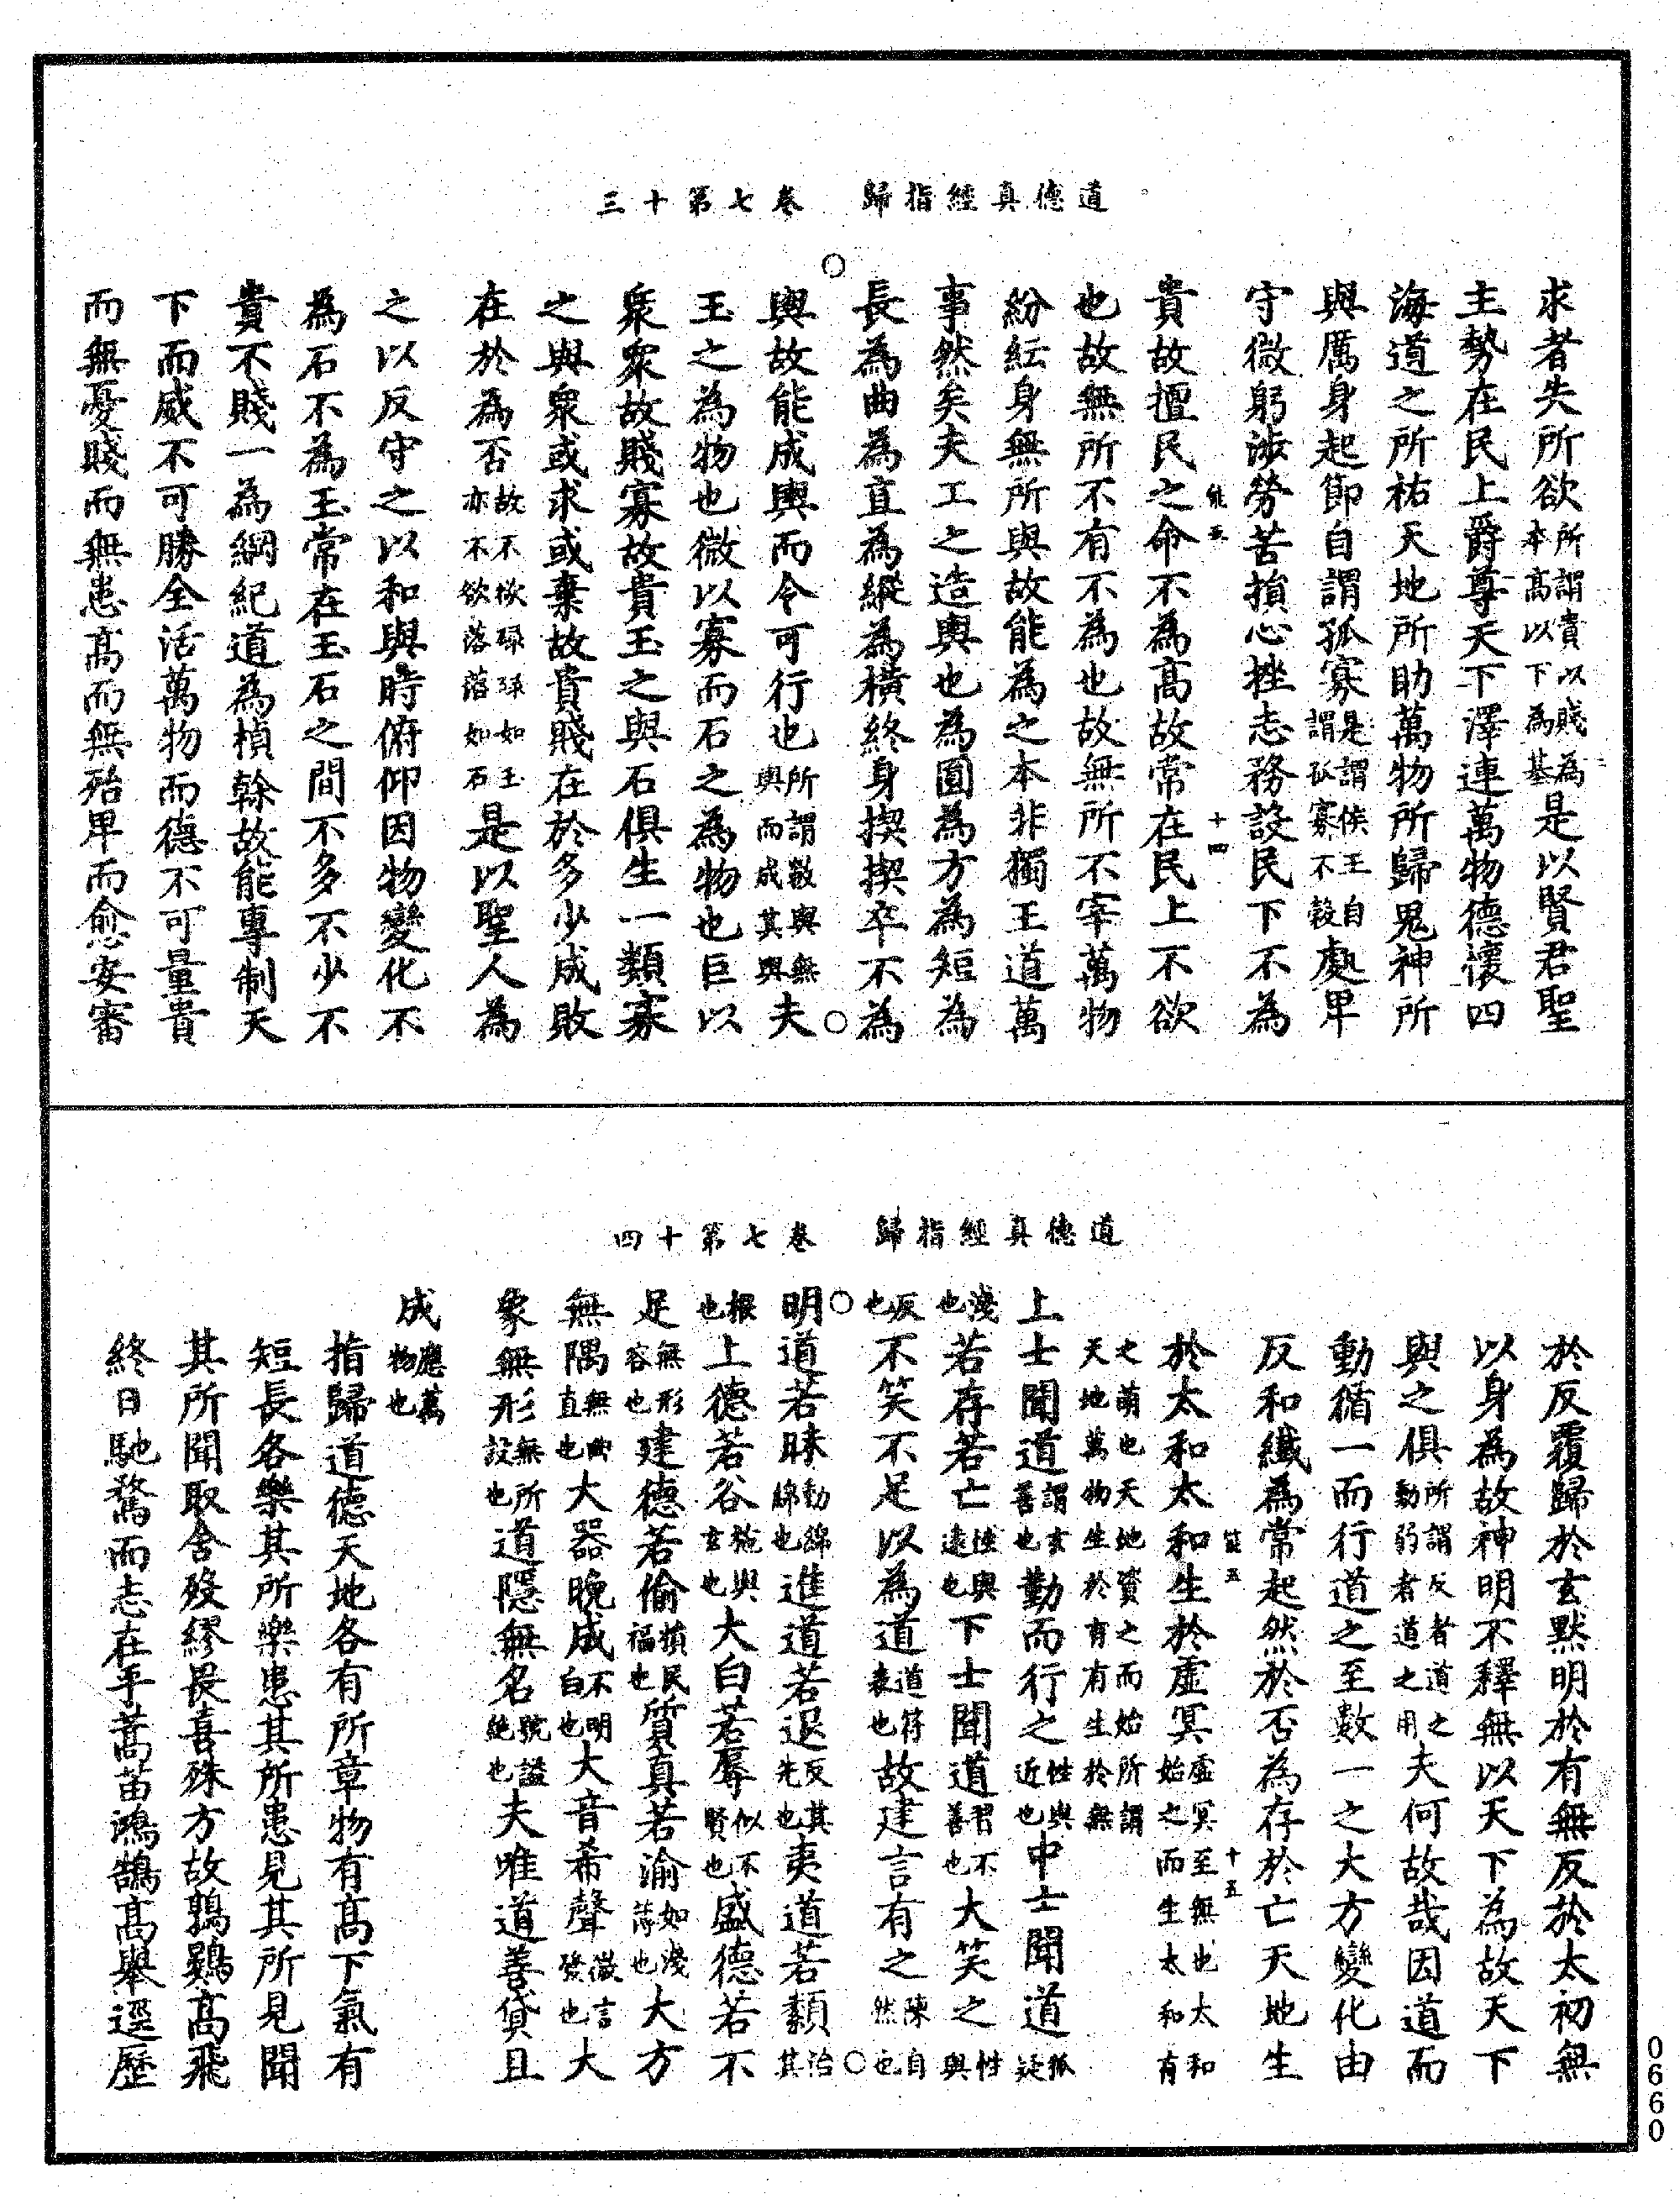 道德真經指歸　卷七第十三
求者失所欲所謂貴以賤為本高以下為基是以賢君聖
主勢在民上爵尊天下澤連萬物德懷四
海道之所祐天地所助萬物所歸鬼神所
與厲身起節自謂孤寡是謂侯王自謂孤寡不穀處卑
守微躬涉勞苦損心挫志務設民下不為
十四
貴故擅民之命不為高故常在民上不欲
也故無所不有不為也故無所不宰萬物
紛紜身無所與故能為之本非獨王道萬
事然矣夫工之造輿也為圓為方為短為
長為曲為直為縱為橫終身揳揳卒不為
輿故能成輿而令可行也所謂數輿無輿而成其輿夫
玉之為物也微以寡而石之為物也巨以
衆衆故賤寡故貴玉之與石俱生一類寡
之與衆或求或棄故貴賤在於多少成敗
在於為否故不欲琭琭如玉亦不欲落落如石是以聖人為
之以反守之以和與時俯仰因物變化不
為石不為玉常在玉石之間不多不少不
貴不賤一為綱紀道為楨榦故能專制天
下而威不可勝全活萬物而德不可量貴
而無憂賤而無患高而無殆卑而愈安審
道德真經指歸　卷七第十四
於反覆歸於玄默明於有無反於太初無
以身為故神明不釋無以天下為故天下
與之俱所謂反者道之動弱者道之用夫何故哉因道而
動循一而行道之至數一之大方變化由
反和纖為常起然於否為存於亡天地生
十五
於太和太和生於虛冥虛冥至無也太和始之而生太和有
之萌也天地資之而始所謂天地萬物生於有有生於無
上士聞道謂玄善也勤而行之性與近也中士聞道狐疑
淺也若存若亡性與遠也下士聞道智不善也大笑之性與
反也不笑不足以為道道符表也故建言有之陳自然也
明道若昧動綿綿也進道若退反其先也夷道若纇治其
根也上德若谷施與玄也大白若辱似不賢也盛德若不
足無形容也建德若偷損民福也質真若渝如淺薄也大方
無隅無曲直也大器晚成不明白也大音希聲微言發也大
象無形無所設也道隱無名號謚絶也夫唯道善貸且
成應萬物也
指歸道德天地各有所章物有高下氣有
短長各樂其所樂患其所患見其所見聞
其所聞取舍殊繆畏喜殊方故鶉鷃高飛
終日馳騖而志在乎蒿苗鴻鵠高舉逕歷
0660